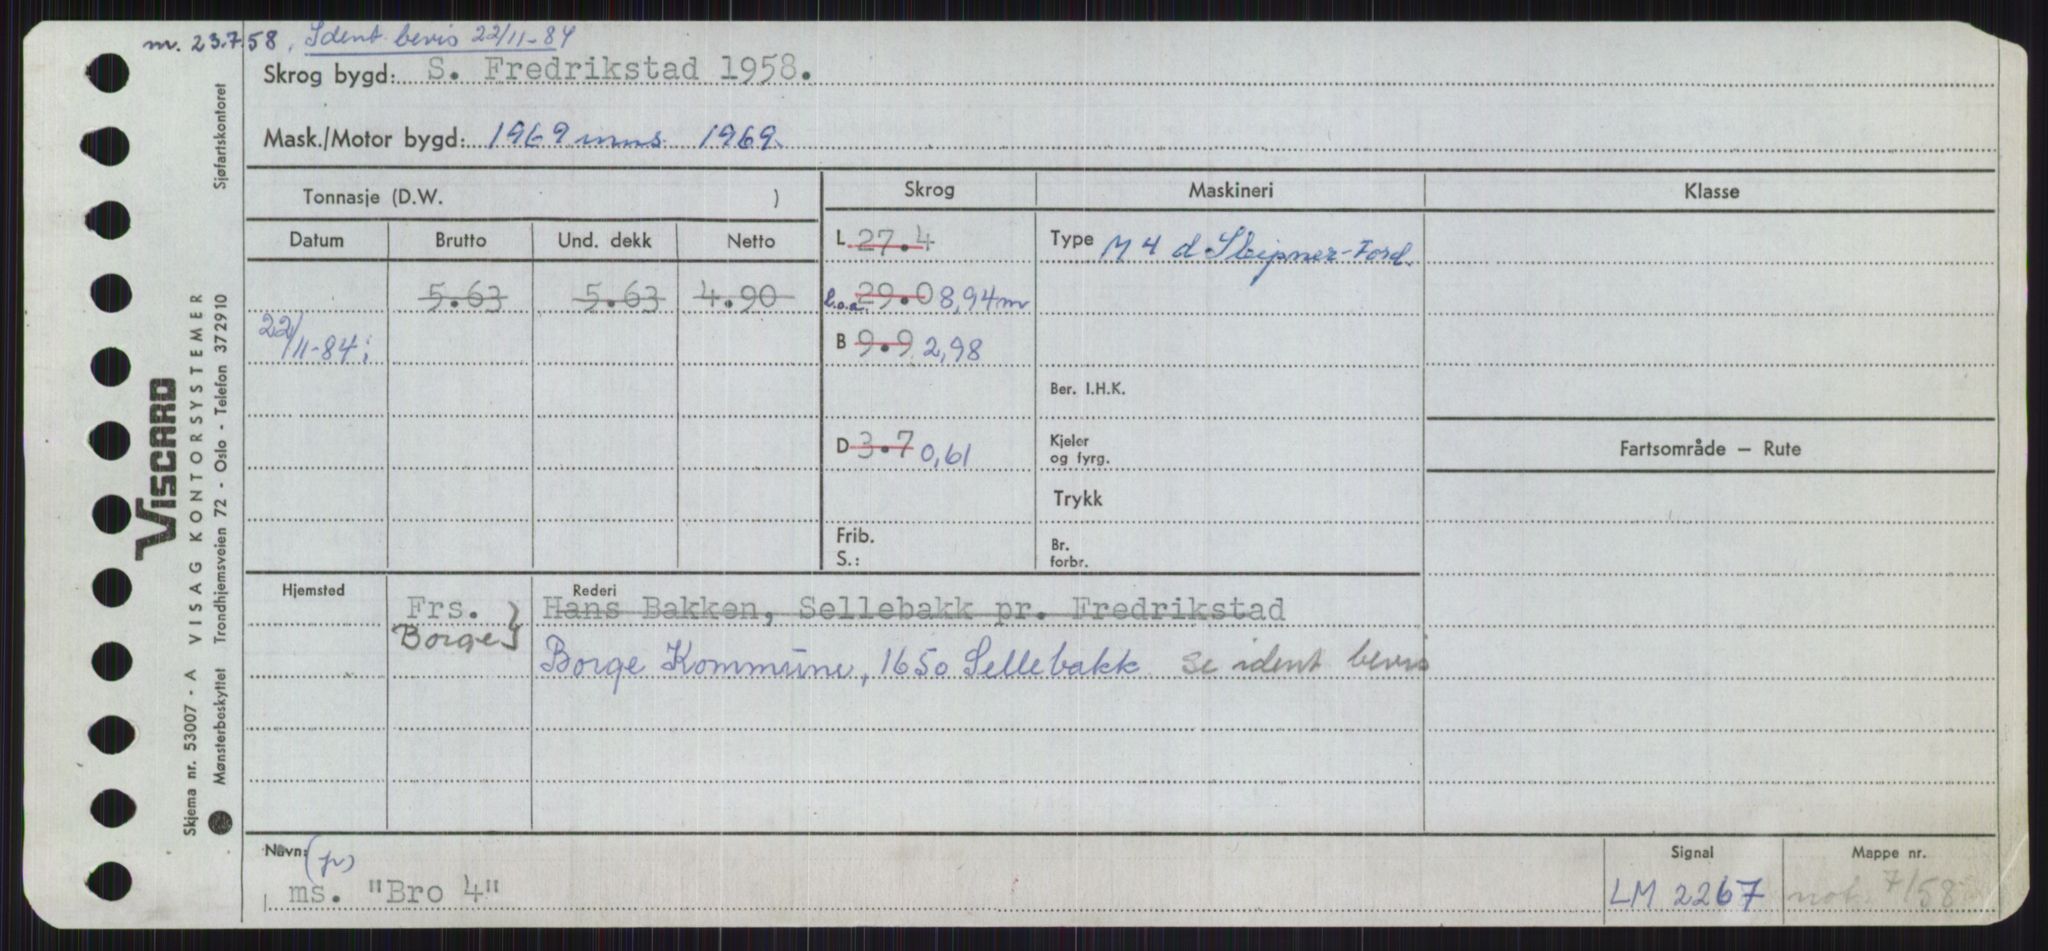 m. 23.7.58, Ident. bevis 22/11-84
Skrog bygd: S. Fredrikstad 1958.
Mask./Motor bygd: 1969 mms 1969.
Tonnasje (D.W. ) Skrog Maskineri Klasse
Datum Brutto Und. dekk Netto L 27.4 Type M 4 d Sleipner-Ford.
5.63 5.63 4.90 l.o.a. 29.0 8,94 m
22/11-84; B 9.9 2,98
Ber. I.H.K.
D 3.7 0,61 Kjeler og fyrg. Fartsområde — Rute
Trykk
Frib. S.: Br. forbr.
Hjemsted Rederi
Frs. } Hans Bakken, Sellebakk pr. Fredrikstad
Borge
Borge Kommune, 1650 Sellebakk se ident bevis
Navn: (pr) Signal Mappe nr.
ms. "Bro 4" LM 2267 not. 7/58
Skjema nr. 53007 - A VISAG KONTORSYSTEMER
VISCARD
Mønsterbeskyttet Trondhjemsveien 72 - Oslo - Telefon 372910 Sjøfartskontoret